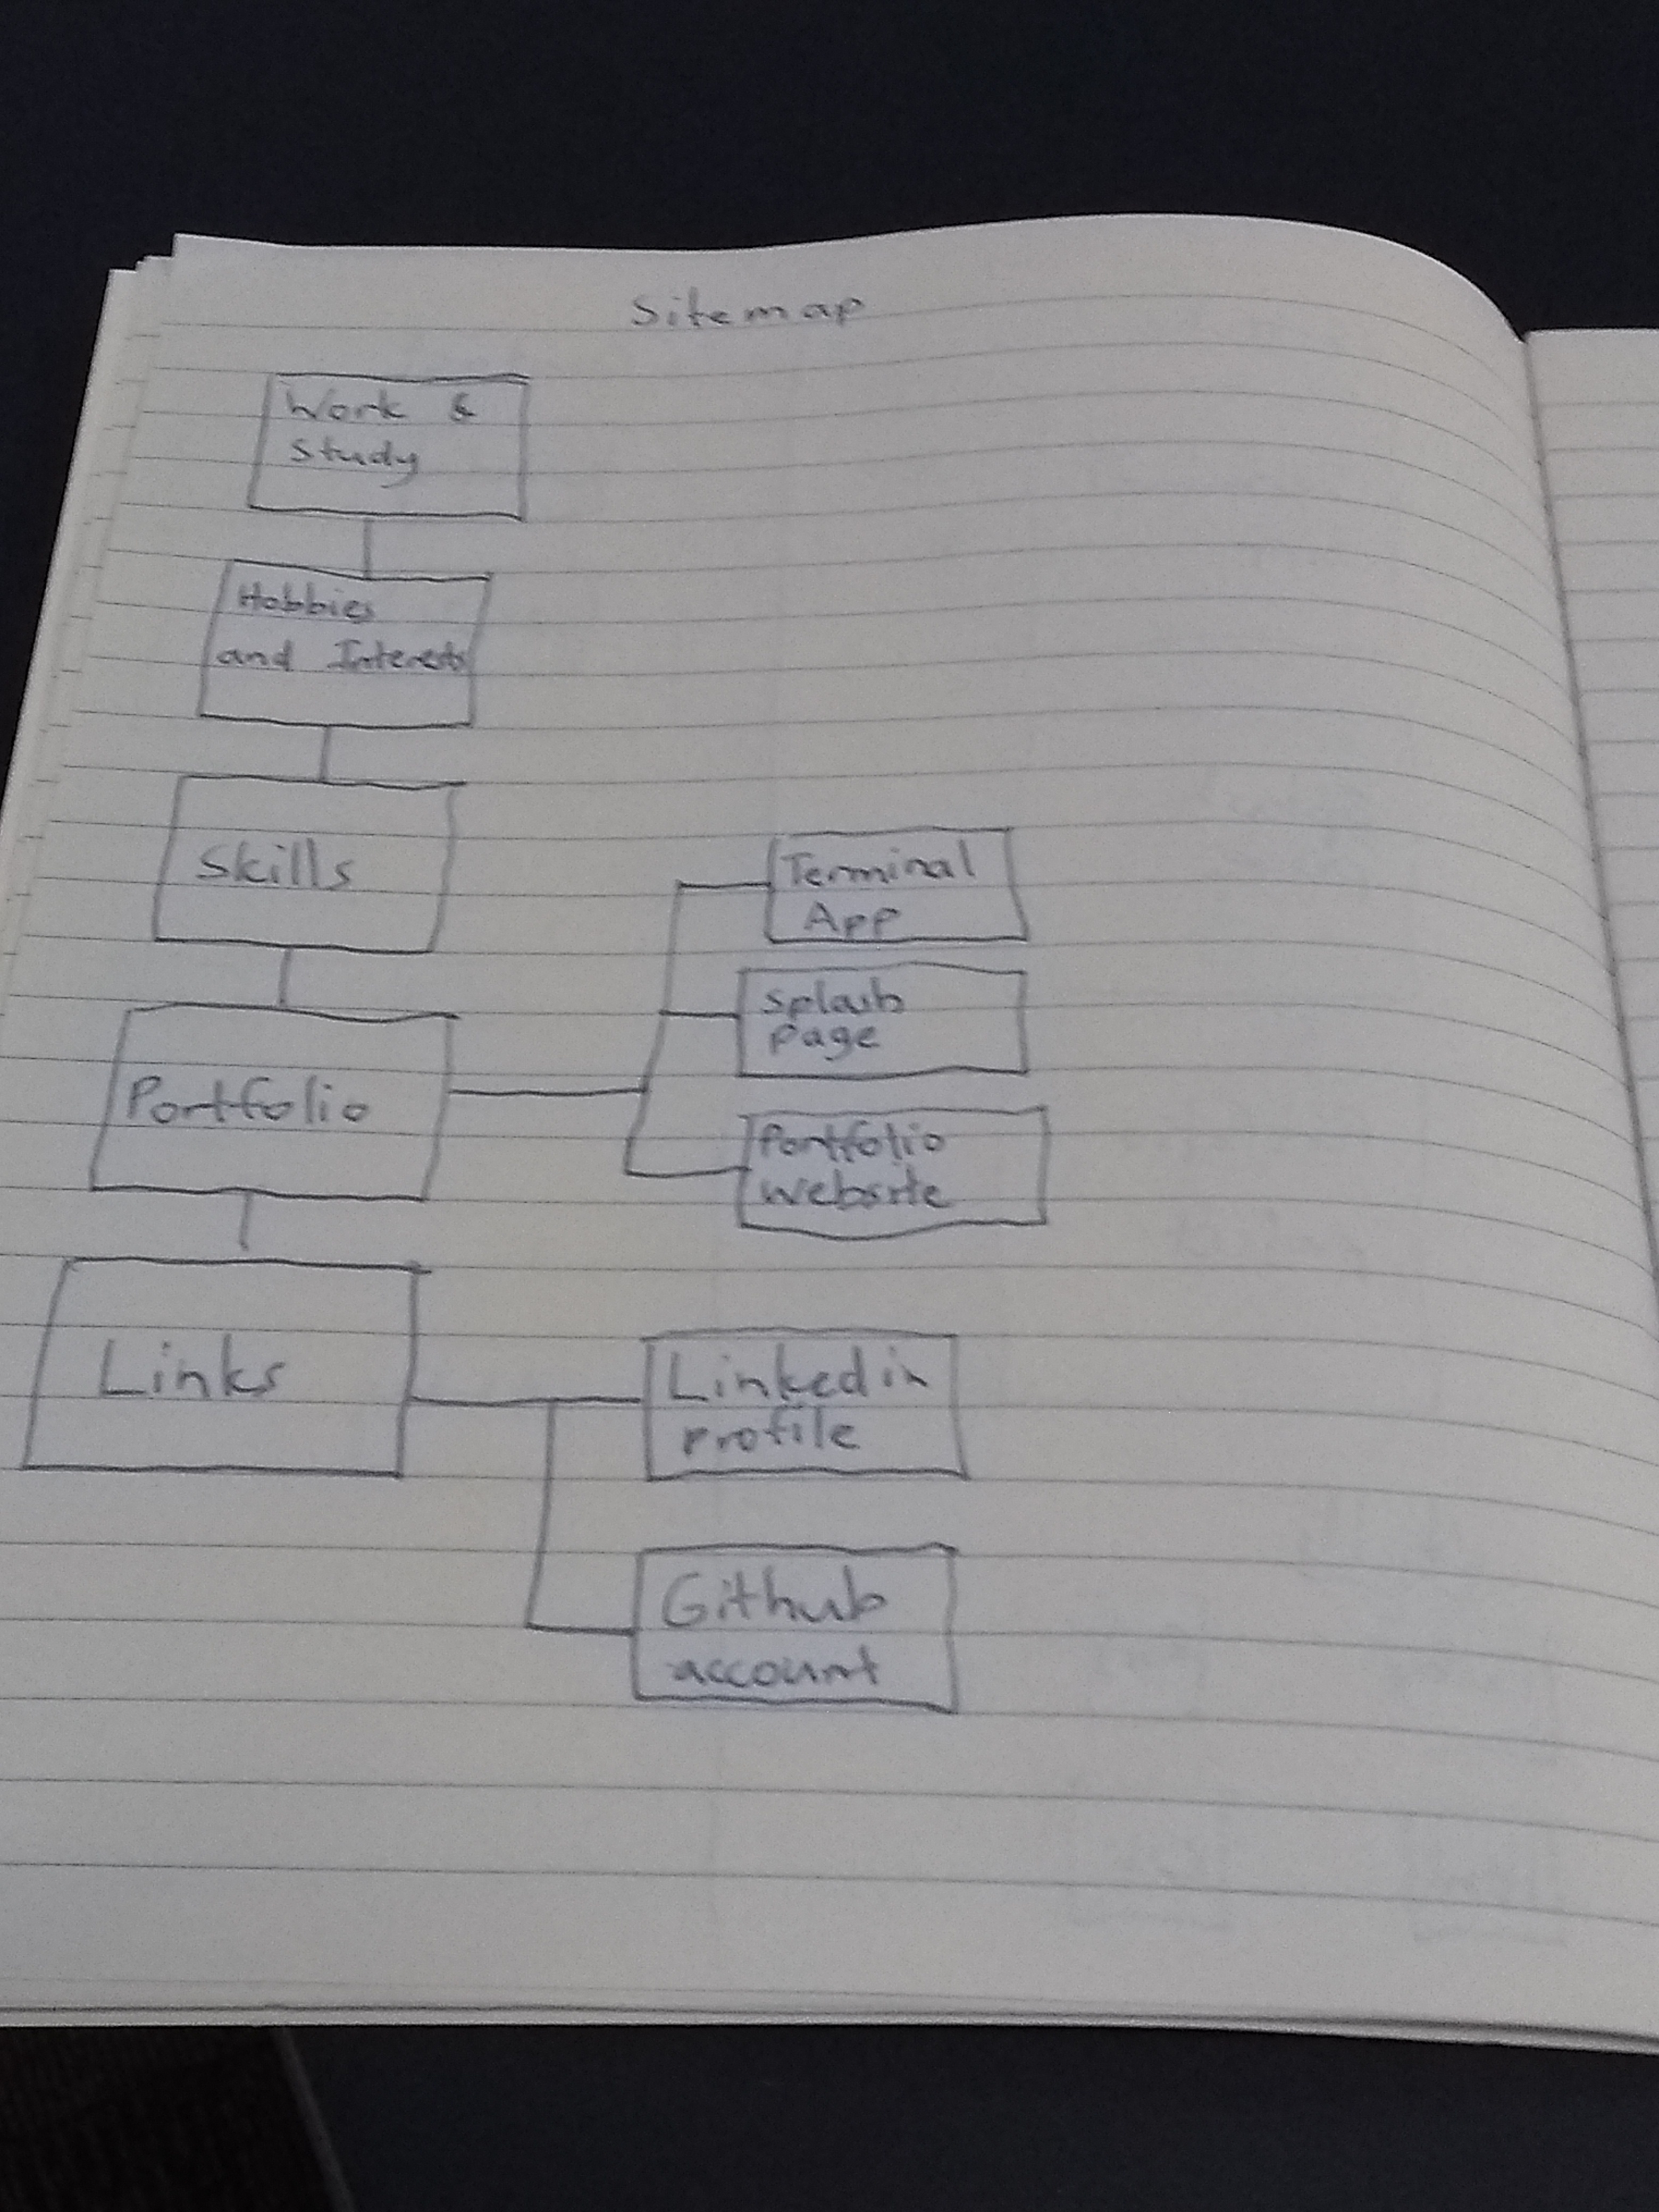 Sitemap
Work &
Study
Hobbies
and Interests
Skills
Terminal
App
Splash
Page
Portfolio
Portfolio
Website
Links
Linkedin
profile
Github
account